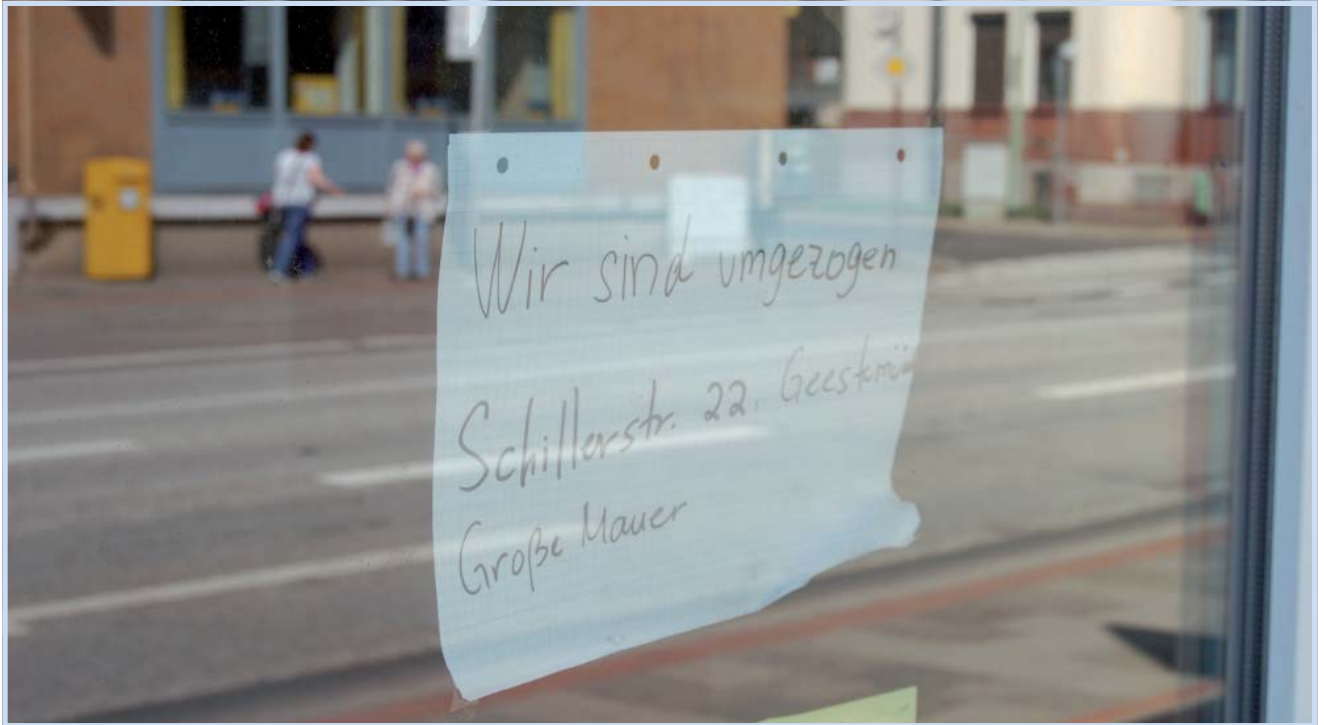 Wir sind umgezogen
Schillerstr. 22, Geestemü
Große Mauer